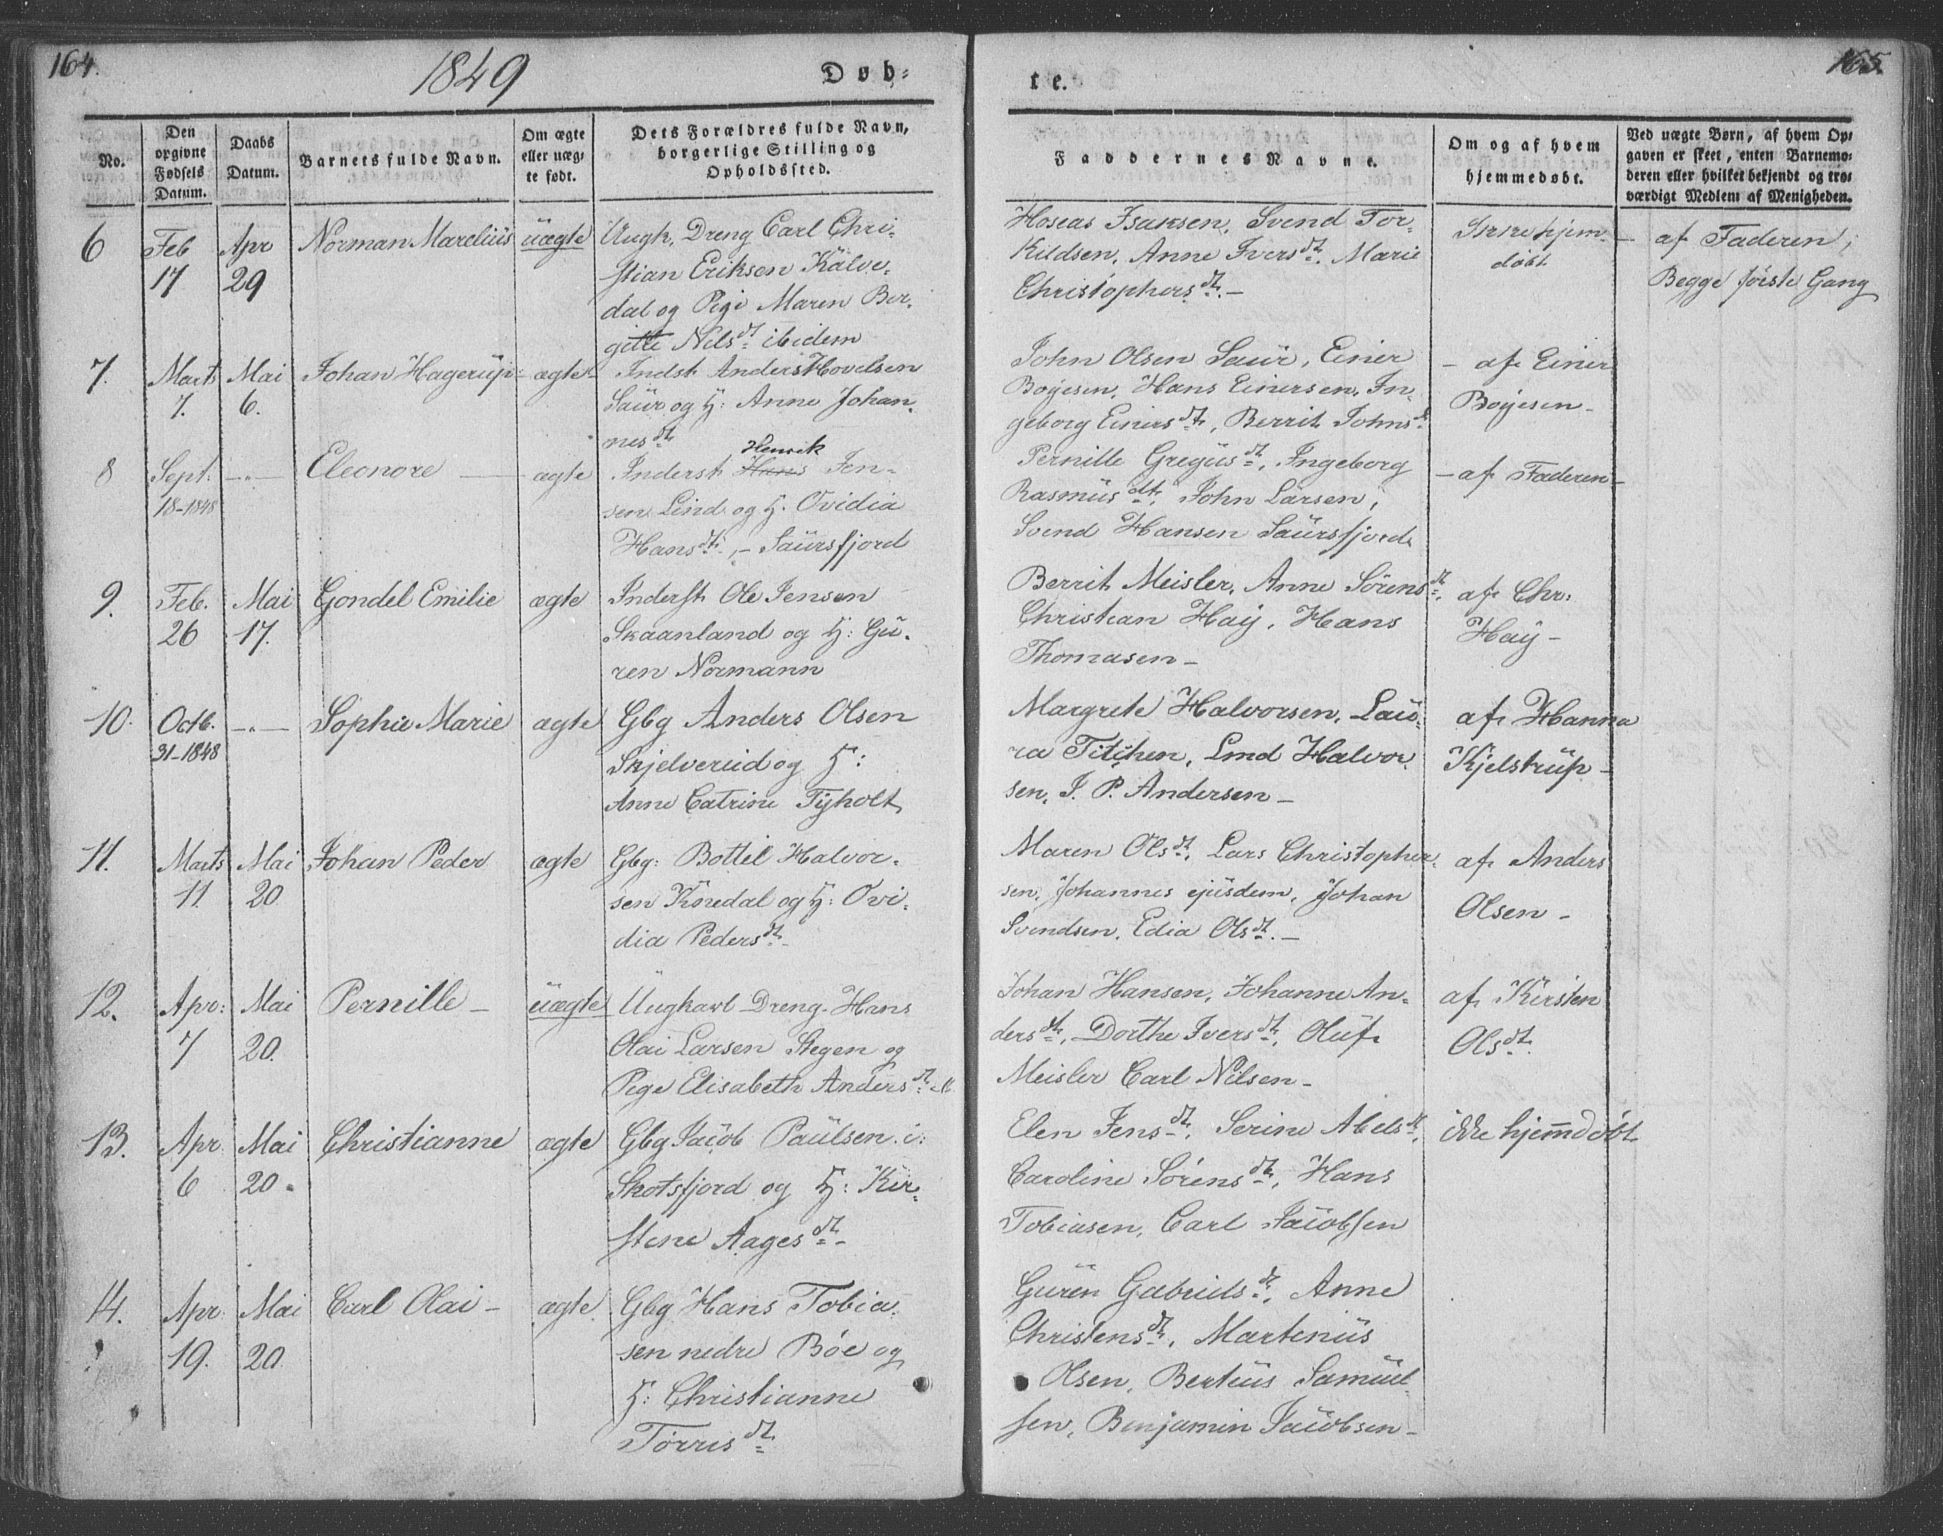 164.
1849
Døb-
te.
165.
No.
Den opgivne Fødsels Datum.
Daabs Datum.
Barnets fulde Navn.
Om ægte eller uæg- te født.
Dets Forældres fulde Navn, borgerlige Stilling og Opholdssted.
Faddernes Navne.
Om og af hvem hjemmedøbt.
Ved uægte Børn, af hvem Op- gaven er skeet, enten Barnemo- deren eller hvilket bekjendt og tro- værdigt Medlem af Menigheden.
6 Feb 17 Apr 29 Norman Marelius uægte
Ungk. Dreng Carl Chri-
stian Eriksen Kalve-
dal og Pige Maren Ber-
gitte Nilsdt ibidem
Hoseas Isaksen, Svend Tor-
kildsen, Anne Iversdt. Marie
Christophersdt. -
Ikke hjem-
døbt
af Faderen,
Begge første Gang
7. Marts 7. Mai 6. Johan Hagerup ægte
Indst Anders Hovelsen
Saur og H: Anne Johan-
nesdt
John Olsen Saur, Einer
Boyesen, Hans Einersen, In-
geborg Einersdt, Berrit Johnsd
- af Einer
Boyesen -
8 Sept. 18-1848 -"- Eleonore - ægte
Henrik
Inderst Hans Jen-
sen Lind og H. Ovidia
Hansdt, - Saursfjord
Pernille Gregusdt, Ingeborg
Rasmusdt, John Larsen,
Svend Hansen Saursfjord
- af Faderen -
9. Feb. 26 Mai 17. Gondel Emilie ægte
Inderst Ole Jensen
Skaanland og H: Gu-
ren Normann
Berrit Meisler, Anne Sørensdt.
Christian Hay, Hans
Thomasen -
af Chr:
Hay -
10. Octb. 31-1848 -"- Sophie Marie ægte
Gbg Anders Olsen
Skjelvereid og H:
Anne Catrine Tyholt
Margrete Halvorsen, Lau-
ra Titchen, Lind Halvor-
sen, J. P. Andersen -
af Hanna
Kjelstrup -
11. Marts 11 Mai 20 Johan Peder ægte
Gbg: Bottel Halvor-
sen Knedal og H: Ovi-
dia Pedersdt -
Maren Olsdt, Lars Christopher-
sen, Johannes ejusdem, Johan
Svendsen, Edia Olsdt. -
af Anders
Olsen -
12. Apr: 7 Mai 20. Pernille - uægte
Ungkarl Dreng Hans
Olai Larsen Stegen og
Pige Elisabeth Andersdt
Johan Hansen, Johanne An-
dersdt, Dorthe Iversdt, Oluf
Meisler Carl Nilsen -
af Kirsten
Olsdt.
13. Apr 6 Mai 20. Christianne ægte
Gbg Jacob Paulsen i
Skotsfjord og H: Kir-
stene Aagesdt -
Elen Jensdt, Serine Abelsdt,
Caroline Sørensdt, Hans
Tobiasen, Carl Jacobsen
ikke hjemdøbt
14. Apr 19. Mai 20 Carl Olai - ægte
Gbg Hans Tobia-
sen nedre Bøe og
H: Christianne
Torrisdt
Guren Gabrielsdt, Anne
Christensdt, Martenius
Olsen, Berteus Samuel-
sen, Benjamin Jacobsen -